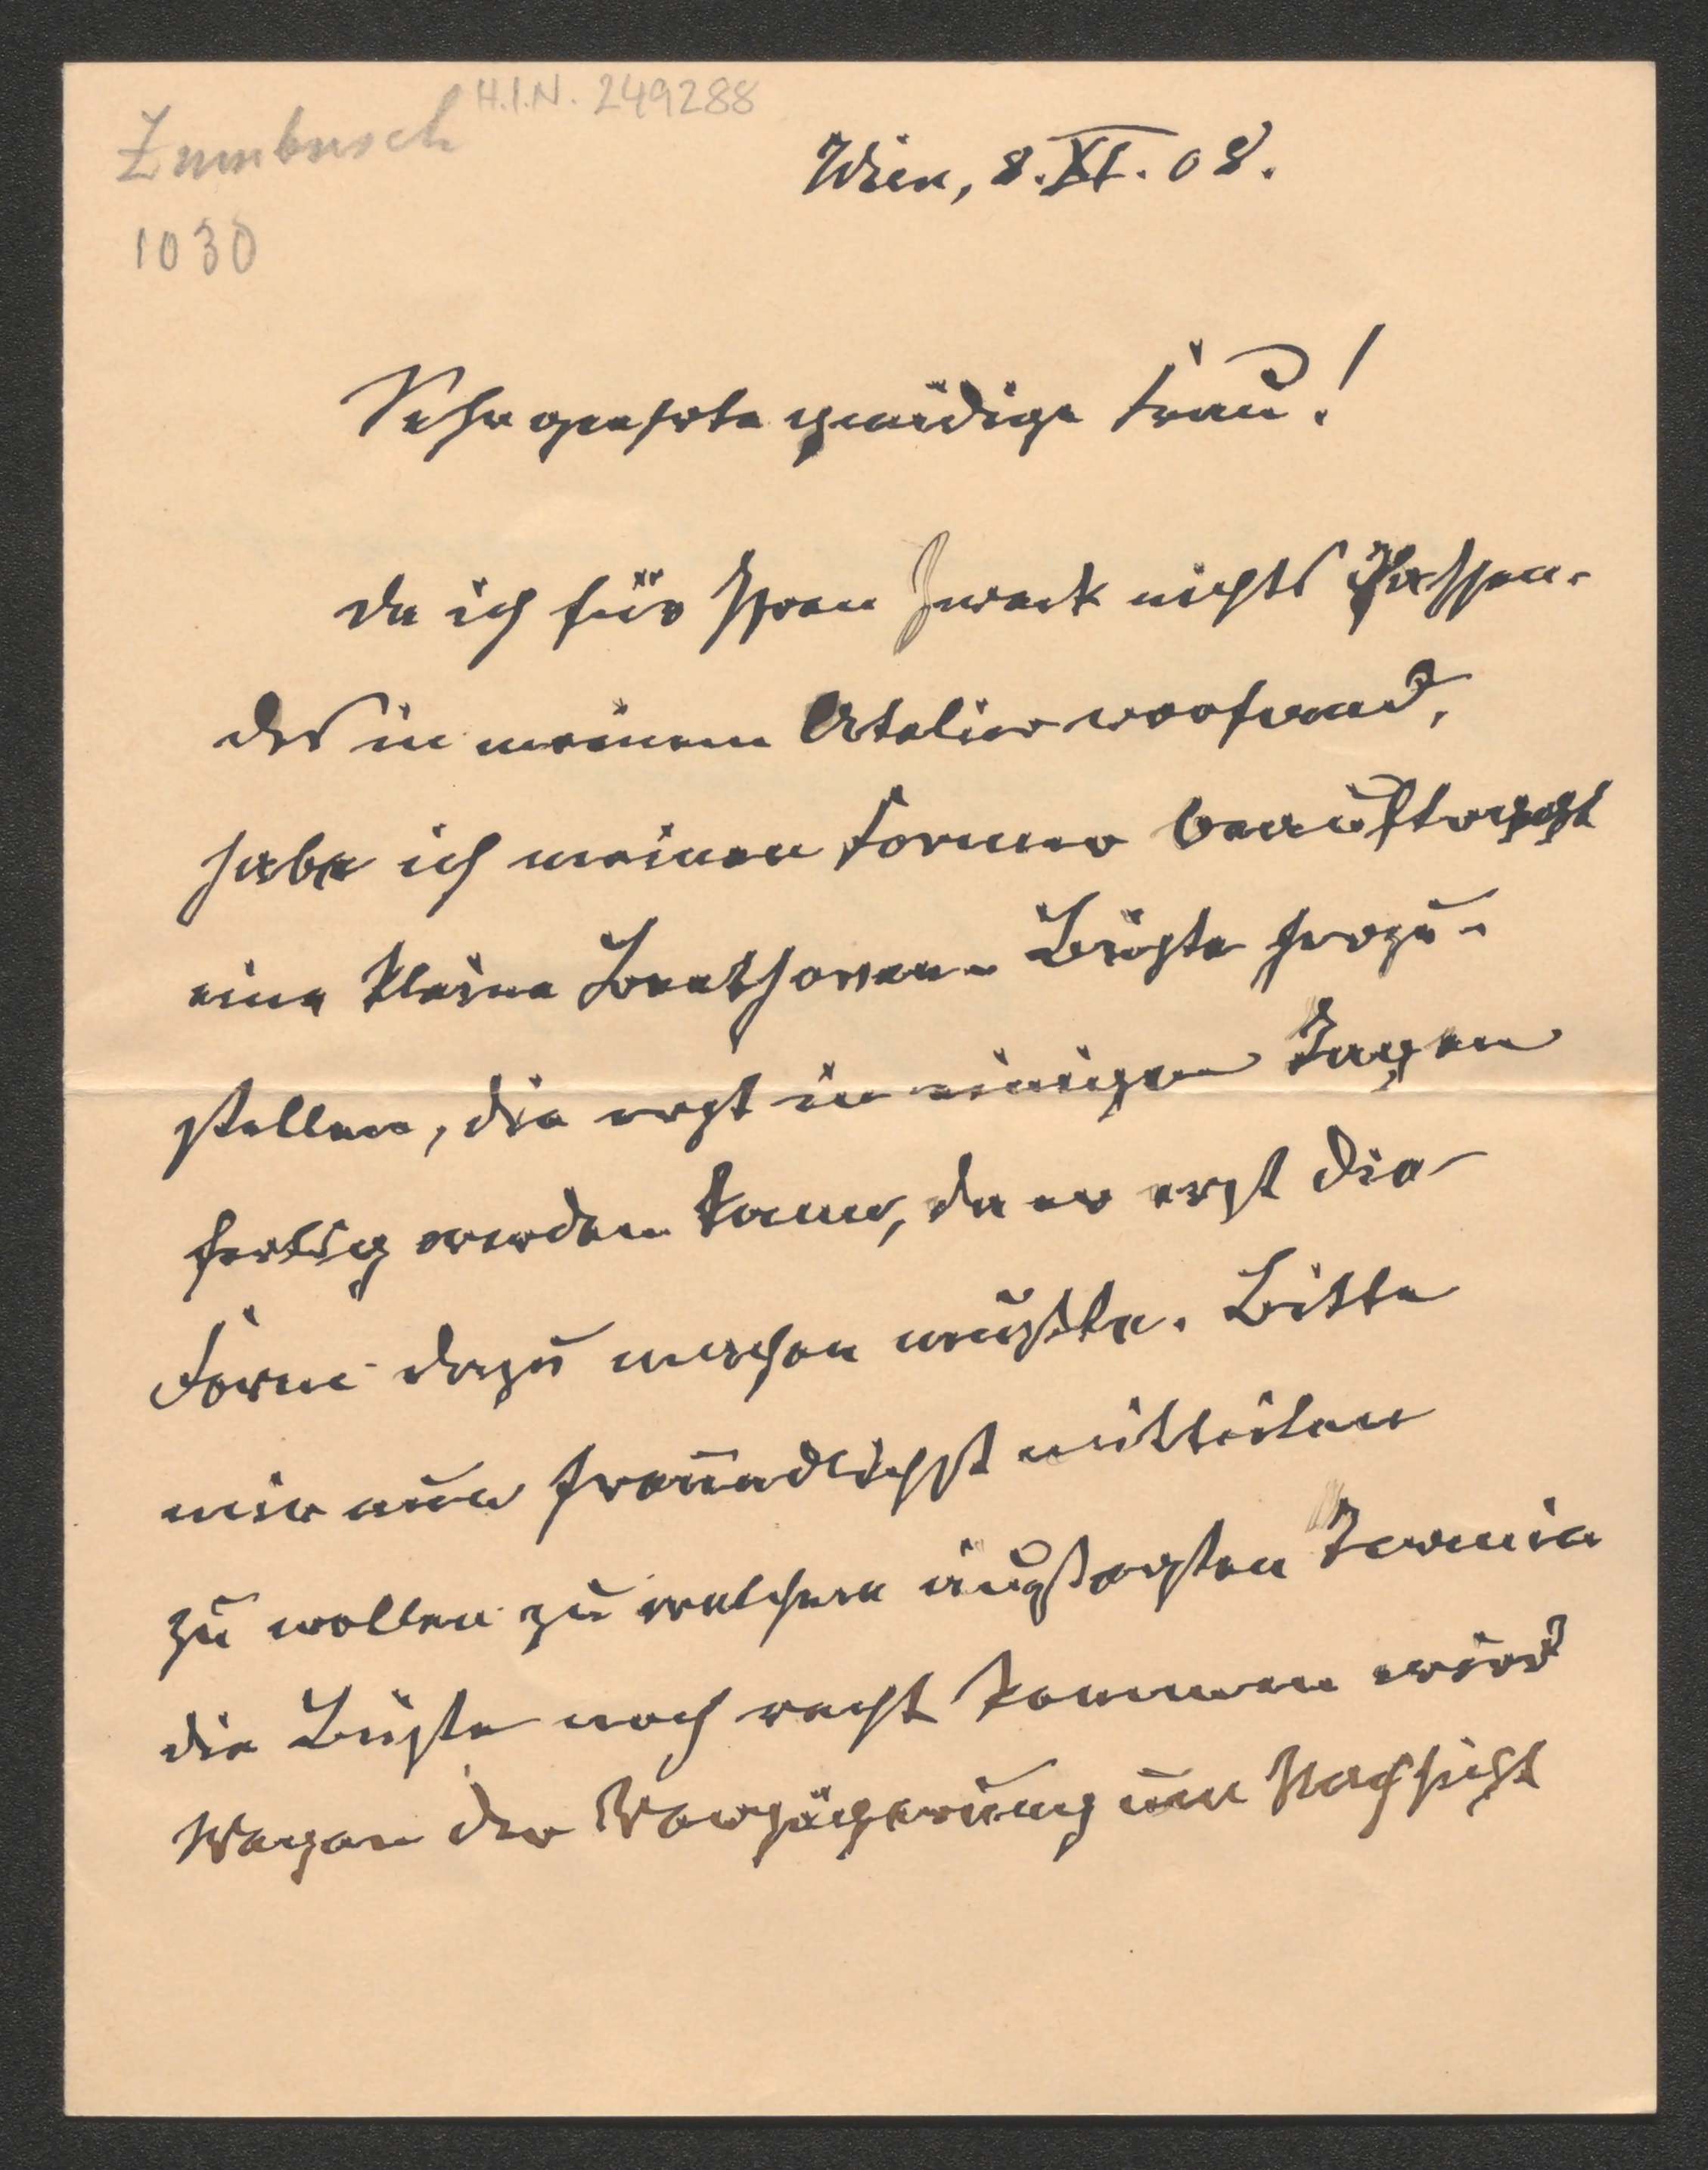 H.I.N. 249288
Zumbusch
1030
Wien, 8. XI. 08.
Sehr geehrte gnädige Frau!
Da ich für Ihren Zweck nichts Passen-
des in meinem Atelier vorfand,
habe ich meinen Former beauftragt
eine kleine Beethoven-Büste herzu-
stellen, die erst in einigen Tagen
fertig werden kann, da er erst die
Form dazu machen mußte. Bitte
mir nun freundlichst mitteilen
zu wollen zu welchem äußersten Termin
die Büste noch recht kommen wird
Wegen der Verzögerung um Nachsicht